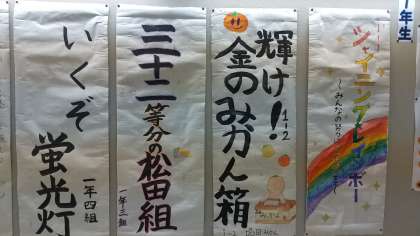 年生
シャイニングレインボー
輝け!
1-2
金のみかん箱
三十二等分の松田組
一年三組
いくぞ
蛍光灯
一年四組